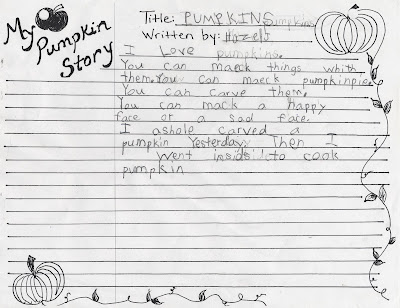 My
Pumpkin
Story
Title: PUMPKINS umpkins
Written by: Hazel
I Love pumpkins.
You can maeck things whith
them. You can maeck pumpkinpie.
You can carve them.
You can mack a happy
face or a sad face.
I ashole carved a
pumpkin Yesterday. Then I
Went inside to cook
pumpkin